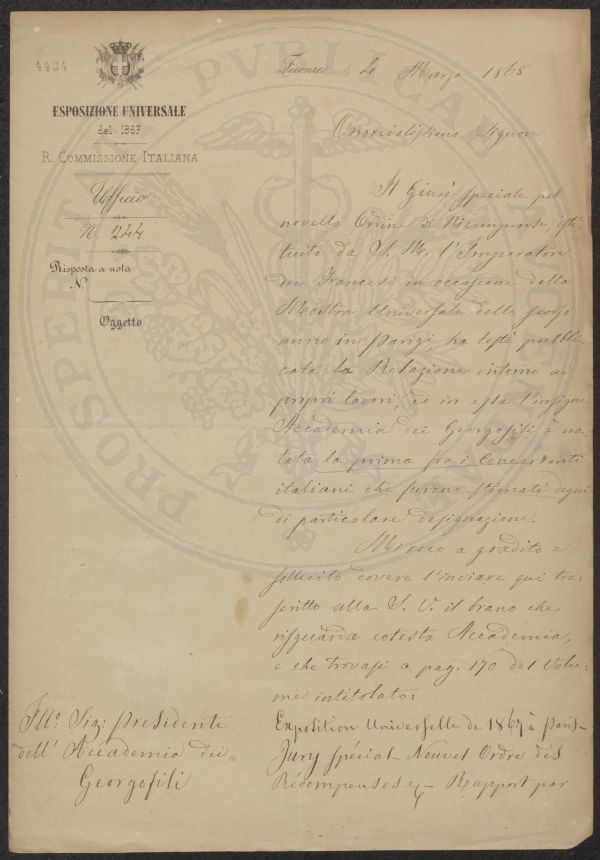 4434
ESPOSIZIONE UNIVERSALE
del 1867
R. COMMISSIONE ITALIANA
Ufficio
N. 244
Risposta a nota
N.
Oggetto
Firenze 4 Marzo 1868
Onorevolissimo Signore
Il Giurì speciale pel
novello Ordine di Ricompense, isti-
tuito da S. M. l'Imperatore
dei Francesi in occasione della
Mostra Universale dello scorso
anno in Parigi, ha testè pubbli-
cata la Relazione intorno ai
proprî lavori, ed in essa l'insigne
Accademia dei Georgofili è no-
tata la prima fra i Concorrenti
italiani che furono stimati degni
di particolare designazione.
Mi reco a gradito e
sollecito dovere l'inviare qui tra-
scritto alla S. V. il brano che
risguarda cotesta Accademia,
e che trovasi a pag. 170 del Volu-
me intitolato:
Exposition Universelle de 1867 à Paris-
Jury spécial - Nouvel Ordre des
Récompenses - Rapport par
Illo. Sig: Presidente
dell' Accademia dei
Georgofili
PROSPERITATI PUBLICAE